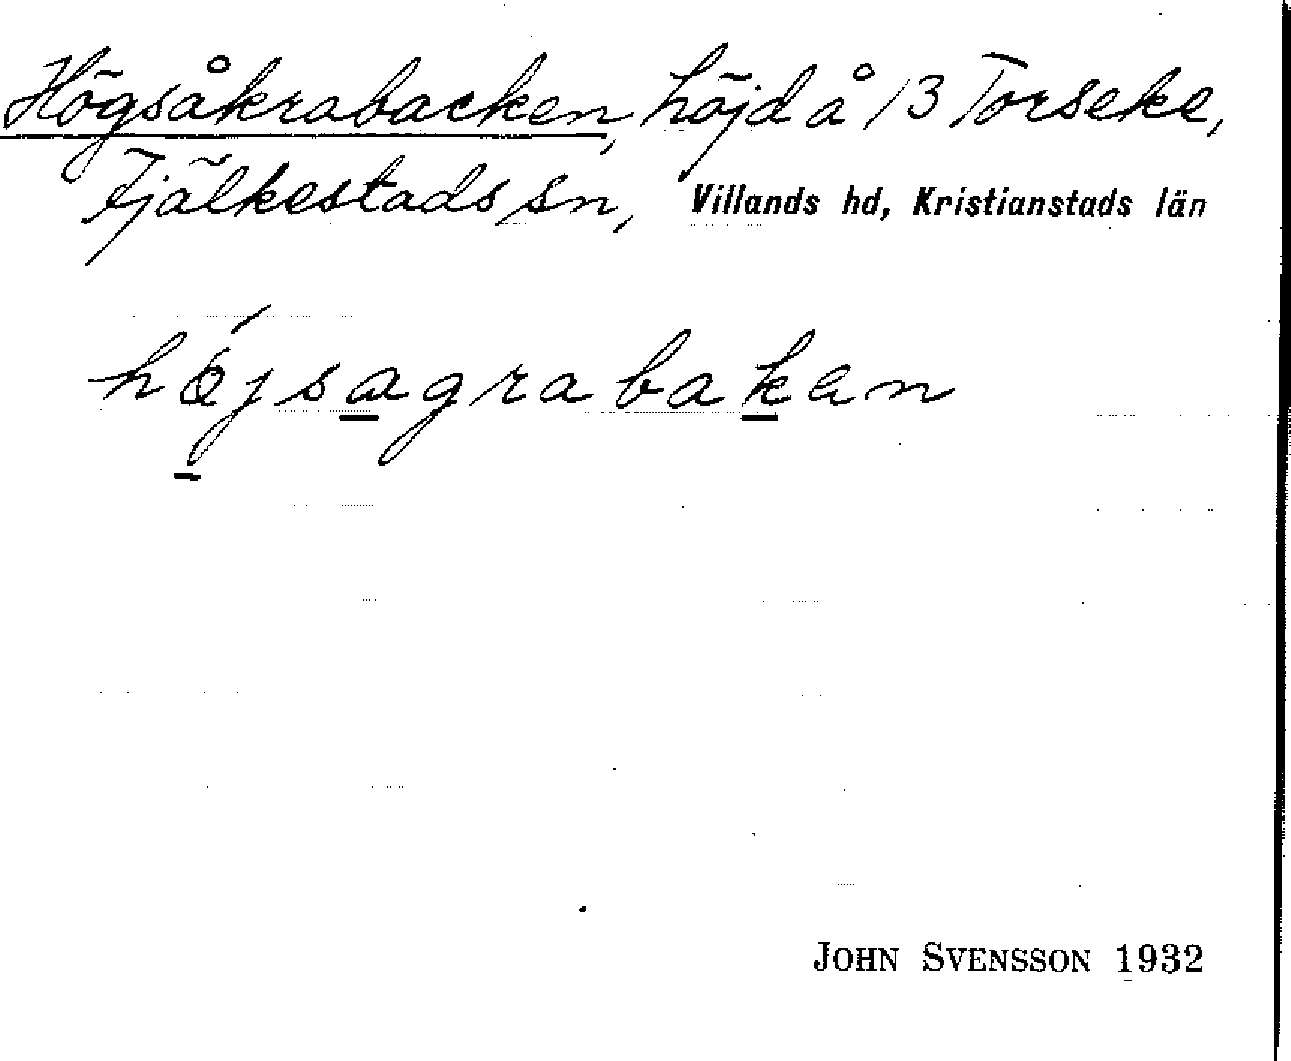 Högsåkrabacken, höjd å 13 Torseke,
Fjälkestads sn, Villands hd, Kristianstads län
höjsagrabakan
JOHN SVENSSON 1932